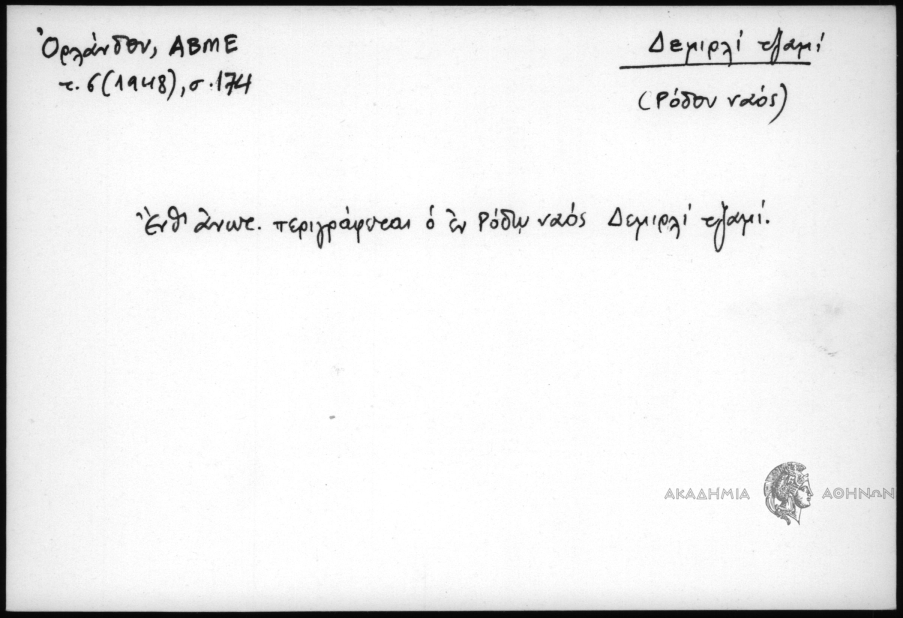 Ὀρλάνδου, ΑΒΜΕ
τ. 6 (1948), σ. 174
Δεμιρλί τζαμί
(Ρόδου ναός)
Ἔνθ' ἄνωτ. περιγράφεται ὁ ἐν Ρόδῳ ναός Δεμιρλί τζαμί.
ΑΚΑΔΗΜΙΑ ΑΘΗΝΩΝ